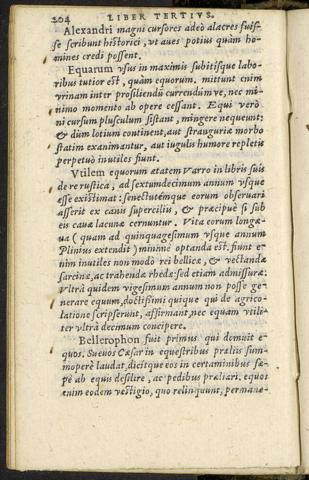 204 LIBER TERTIVS.
Alexandri magni cursores adeò alacres fuis-
se scribunt historici, vt aues potiùs quàm ho-
mines credi possent.
Equarum vsus in maximis subitisque labo-
ribus tutior est, quàm equorum. mittunt enim
vrinam inter prosiliendũ currendũ ve, nec mi-
nimo momento ab opere cessant. Equi verò
ni cursum plusculum sistant, mingere nequeunt:
& dũm lotium continent, aut stranguriæ morbo
statim exanimantur, aut iugulis humore repletis
perpetuò inutiles fiunt.
Vtilem equorum ætatem Varro in libris suis
de re rustica, ad sextumdecimum annum vsque
esse existimat: senectutémque eorum obseruari
asserit ex canis superciliis, & præcipuè si sub
eis cauæ lacunæ cernuntur. Vita eorum longæ-
ua (quam ad quinquagesimum vsque annum
Plinius extendit) minimè optanda est. fiunt e-
nim inutiles non modò rei bellicæ, & vectandæ
sarcinæ, ac trahendæ rhedæ: sed etiam admissuræ:
Vltrà quidem vigesimum annum non posse ge-
nerare equum, doctissimi quique qui de agrico-
latione scripserunt, affirmant, nec equam vtili-
ter vltrà decimum concipere.
Bellerophon fuit primus qui domuit e-
quos. Sueuos Cæsar in equestribus præliis sum-
moperè laudat, dicitque eos in certaminibus sæ-
pè ab equis desilire, ac pedibus præliari. equos
enim eodem vestigio, quo relinquunt, permane-